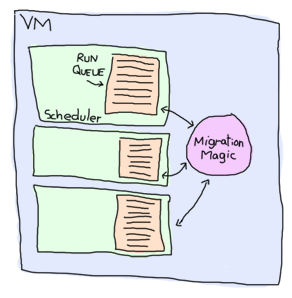 VM
RUN
QUEUE
Scheduler
Migration
Magic